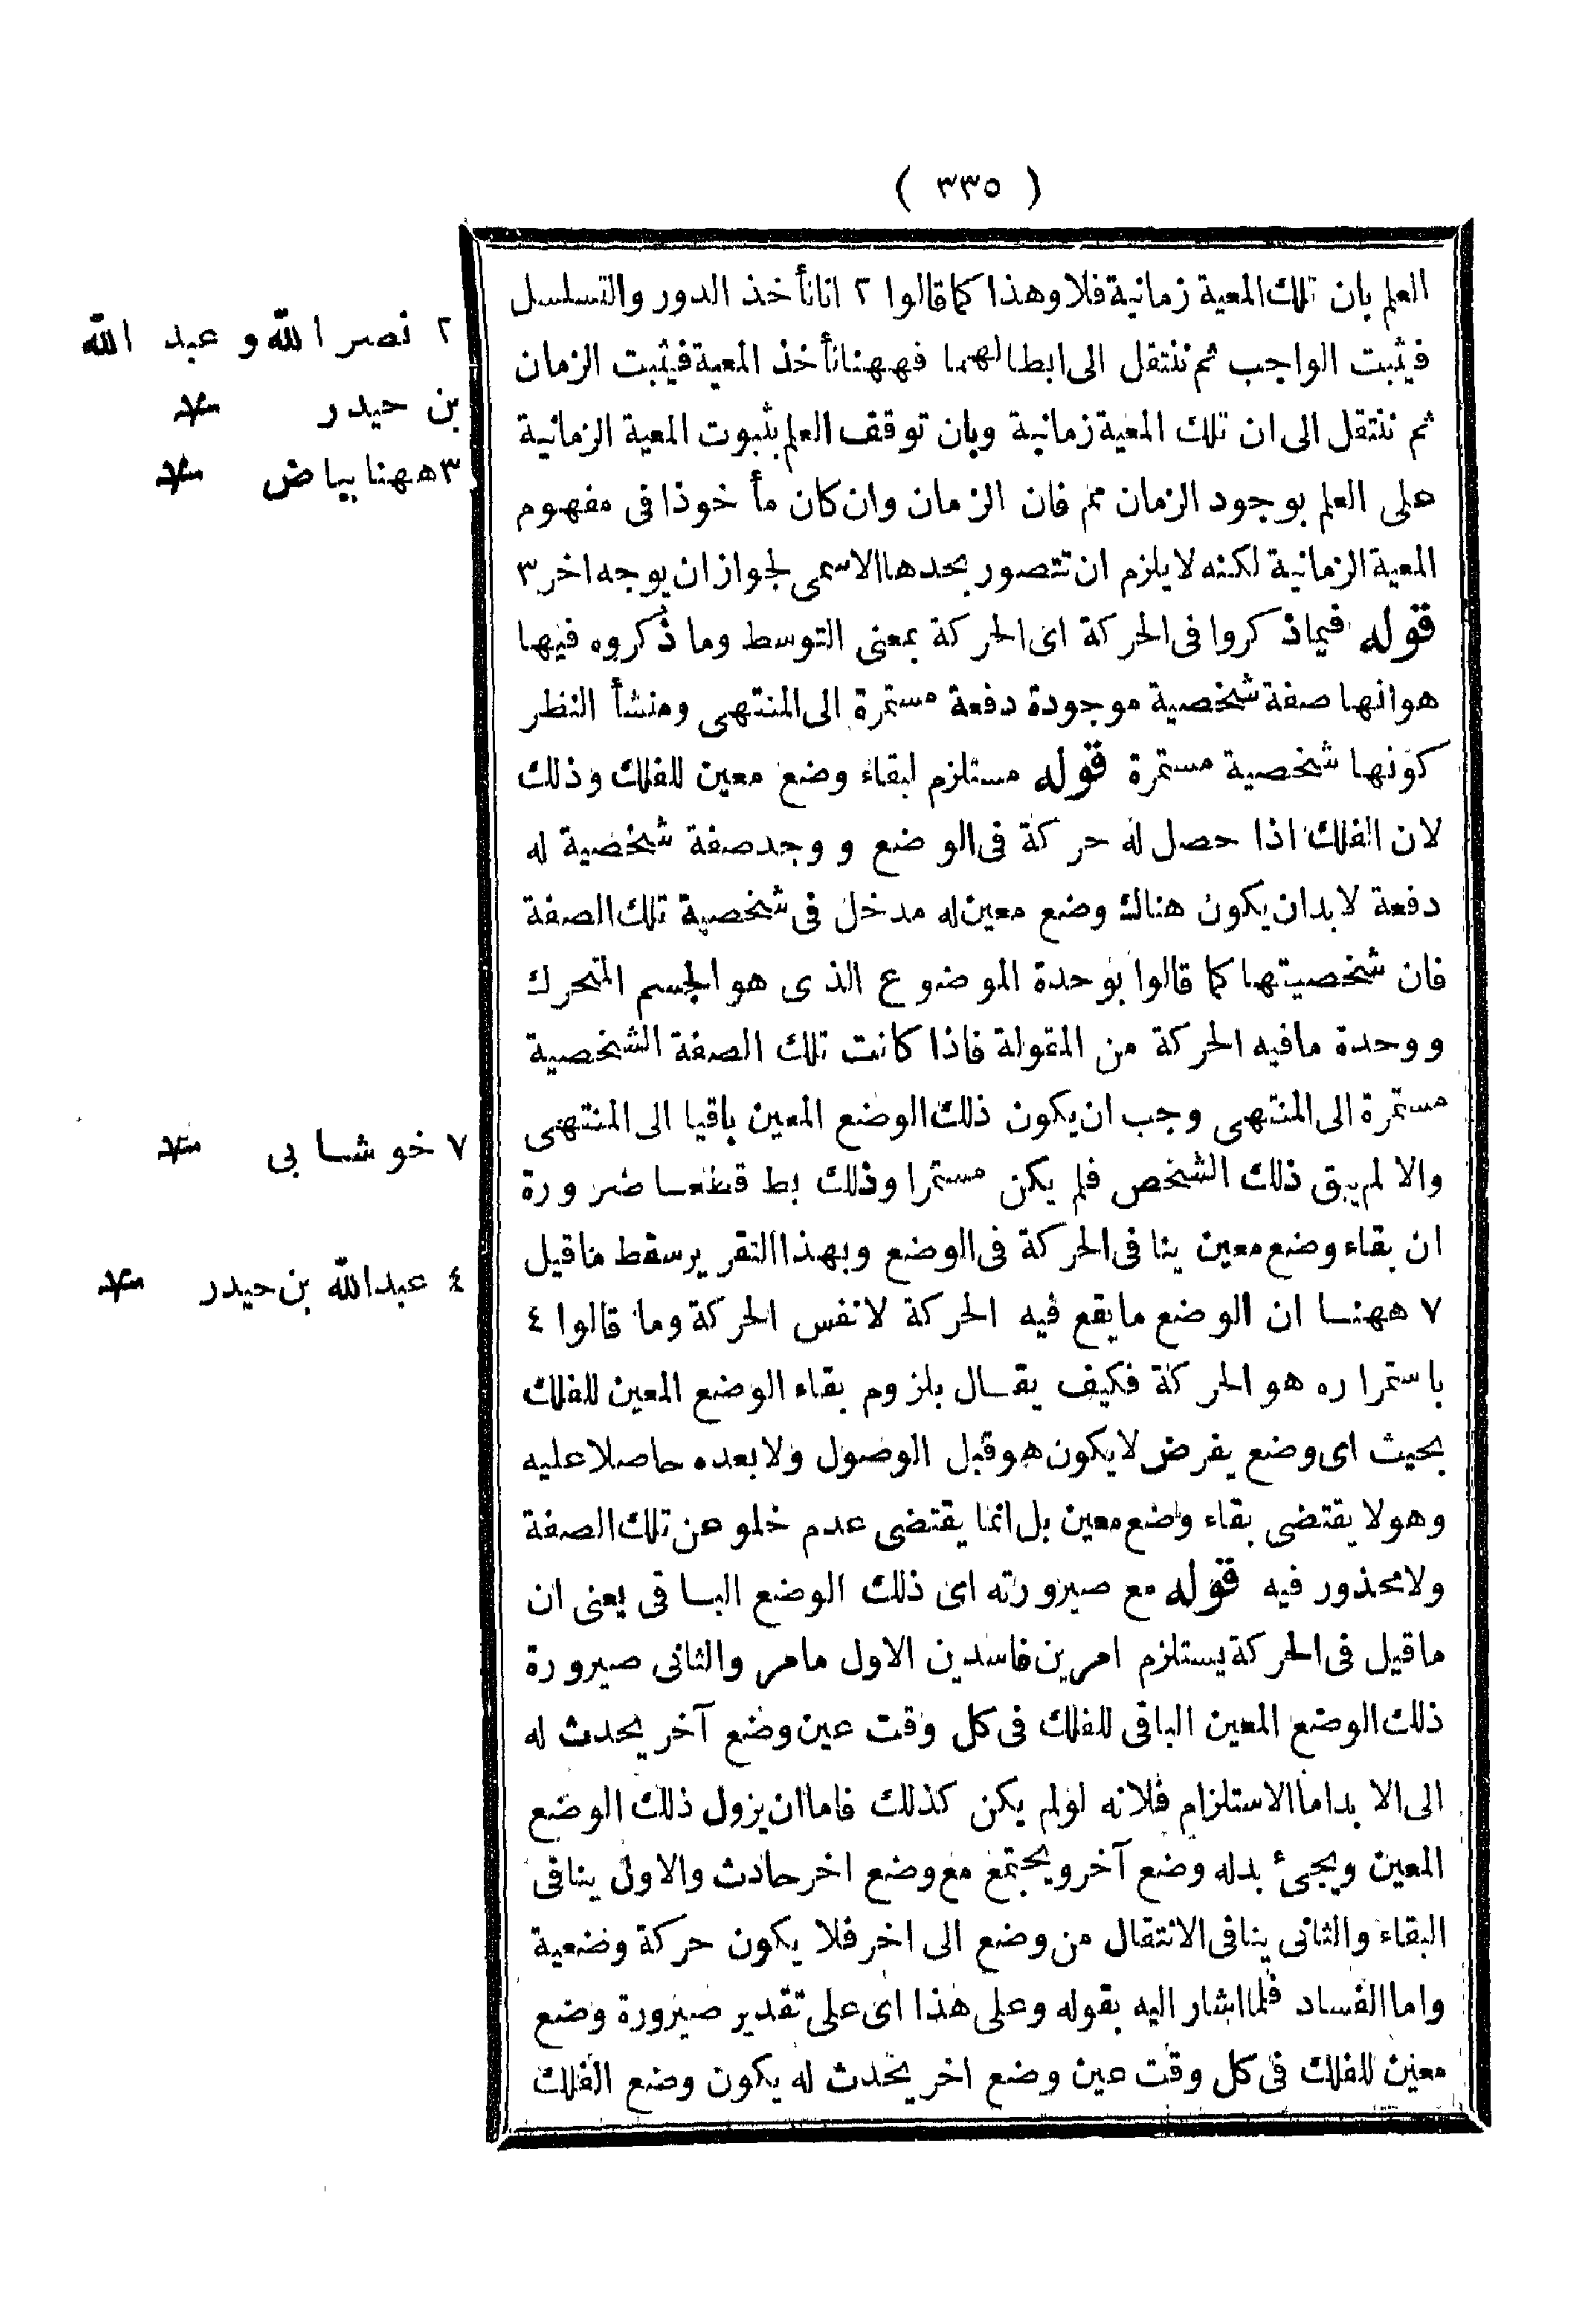 ( ٣٣٥ )
العلم بان تلك المعية زمانية فلا وهذا كما قالوا ٢ انا نأخذ الدور والتسلسل
فيثبت الواجب ثم ننتقل الى ابطالهما فههنا نأخذ المعية فيثبت الزمان
ثم ننتقل الى ان تلك المعية زمانية وبان توقف العلم بثبوت المعية الزمانية
على العلم بوجود الزمان مم فان الزمان وان كان مأخوذا فى مفهوم
المعية الزمانية لكنه لا يلزم ان تتصور بحدها الاسمى لجواز ان يوجه اخر ٣
قوله فيما ذكروا فى الحركة اى الحركة بمعنى التوسط وما ذكروه فيها
هو انها صفة شخصية موجودة دفعة مستمرة الى المنتهى ومنشأ النظر
كونها شخصية مستمرة قوله مستلزم لبقاء وضع معين للفلك وذلك
لان الفلك اذا حصل له حركة فى الوضع ووجد صفة شخصية له
دفعة لابد ان يكون هناك وضع معين له مدخل فى شخصية تلك الصفة
فان شخصيتها كما قالوا بوحدة الموضوع الذى هو الجسم المتحرك
ووحدة ما فيه الحركة من المقولة فاذا كانت تلك الصفة الشخصية
مستمرة الى المنتهى وجب ان يكون ذلك الوضع المعين باقيا الى المنتهى
والا لم يبق ذلك الشخص فلم يكن مستمرا وذلك بط قطعا ضرورة
ان بقاء وضع معين ينافى الحركة فى الوضع وبهذا التقرير سقط ما قيل
٧ ههنا ان الوضع ما يقع فيه الحركة لا نفس الحركة وما قالوا ٤
باستمراره هو الحركة فكيف يقال بلزوم بقاء الوضع المعين للفلك
بحيث اى وضع يفرض لا يكون هو قبل الوصول ولا بعده حاصلا عليه
وهو لا يقتضى بقاء وضع معين بل انما يقتضى عدم خلو عن تلك الصفة
ولا محذور فيه قوله مع صيرورته اى ذلك الوضع الباقى يعنى ان
ما قيل فى الحركة يستلزم امرين فاسدين الاول مامر والثانى صيرورة
ذلك الوضع المعين الباقى للفلك فى كل وقت عين وضع آخر يحدث له
الى الابد اما الاستلزام فلانه لو لم يكن كذلك فاما ان يزول ذلك الوضع
المعين ويجئ بدله وضع آخر ويجتمع مع وضع اخر حادث والاول ينافى
البقاء والثانى ينافى الانتقال من وضع الى اخر فلا يكون حركة وضعية
واما الفساد فلما اشار اليه بقوله وعلى هذا اى على تقدير صيرورة وضع
معين للفلك فى كل وقت عين وضع اخر يحدث له يكون وضع الفلك
٢ نصر الله و عبد الله
بن حيدر
٣ ههنا بياض
٧ خوشابى
٤ عبدالله بن حيدر